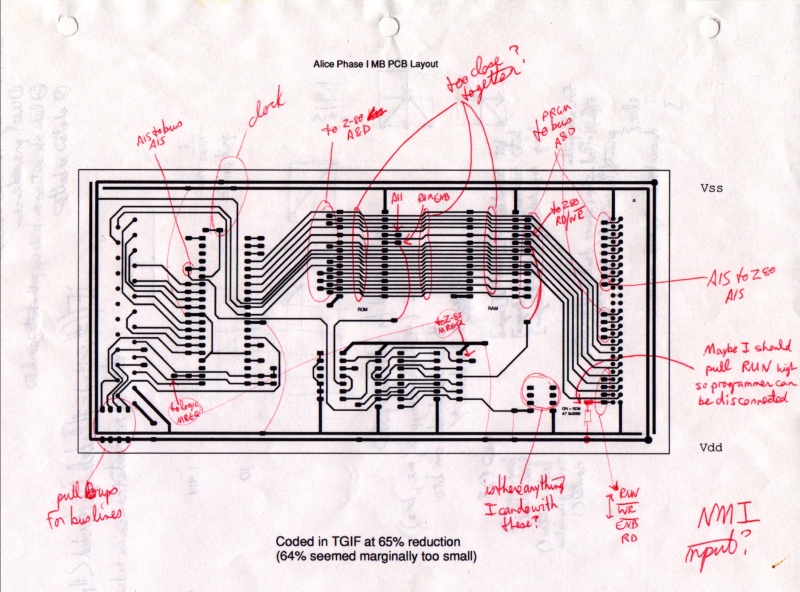 Alice Phase I MB PCB Layout
too close
together?
clock
A15 to bus
A15
to Z-80
A&D
PRGM
to bus
A&D
A11
ROM ENB
to Z80
RD/WR
Vss
ROM
RAM
A15 to Z80
A15
to Z-80
MREQ
Maybe I should
pull RUN high
so programmer can
be disconnected
to logic
MREQ
ON = ROM
AT 0x0000
Vdd
pull ups
for bus lines
is there anything
I can do with
these?
RUN
WR
ENB
RD
NMI
input?
Coded in TGIF at 65% reduction
(64% seemed marginally too small)